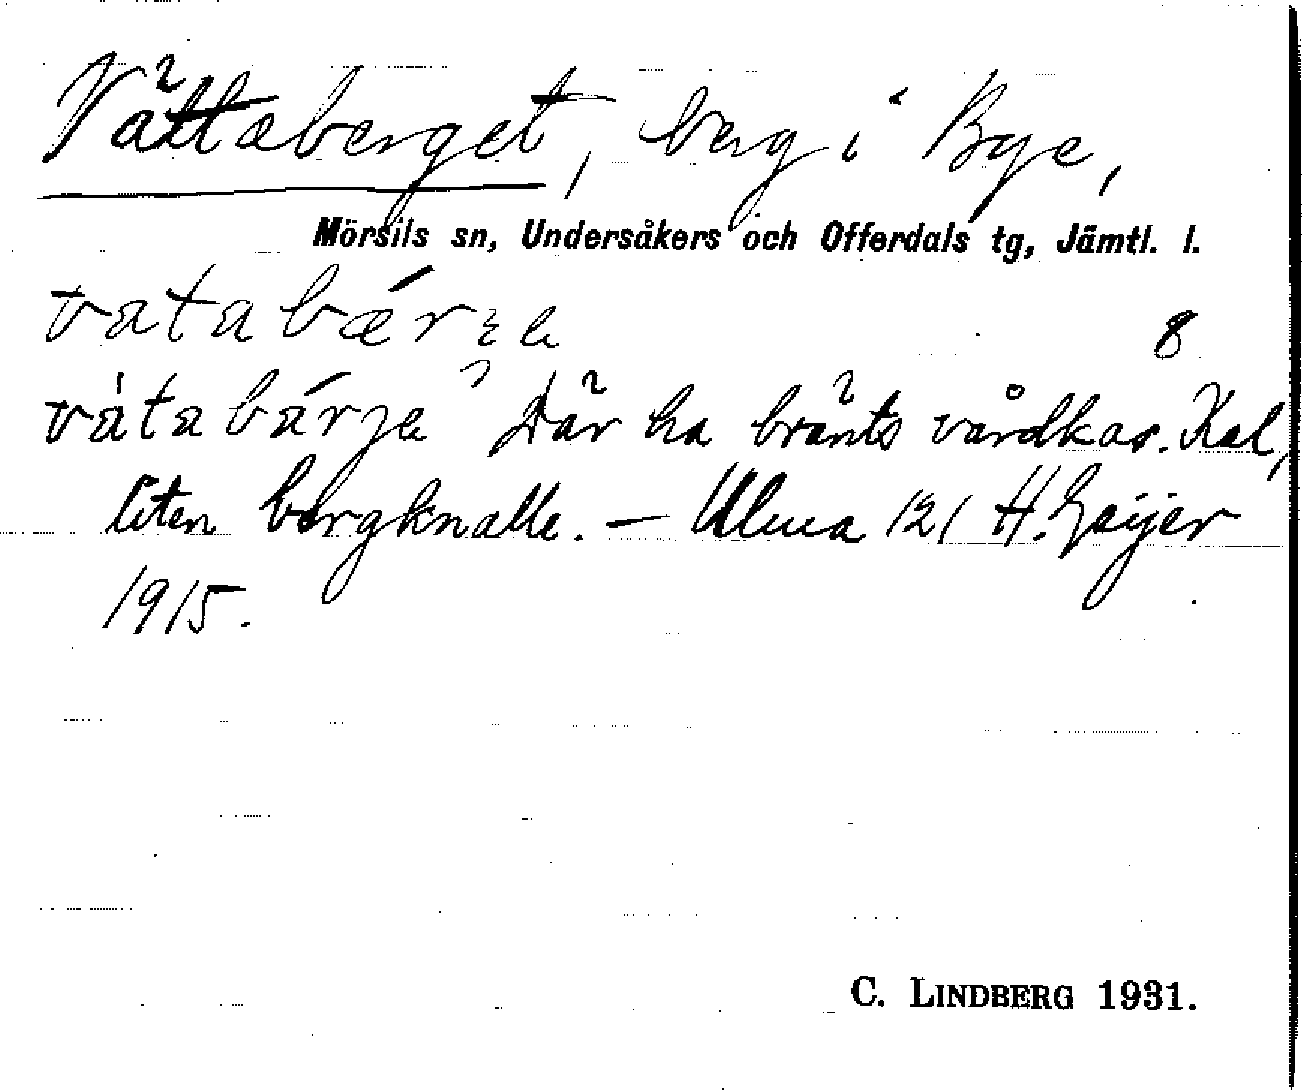 Vättaberget, berg i Bye,
Mörsils sn, Undersåkers och Offerdals tg, Jämtl. l.
vatabǽrʒa
8
vátabárja Där ha bränts vårdkas. Kal,
liten bergknalle. — Ulma 121 H. Geijer
1915.
C. LINDBERG 1931.